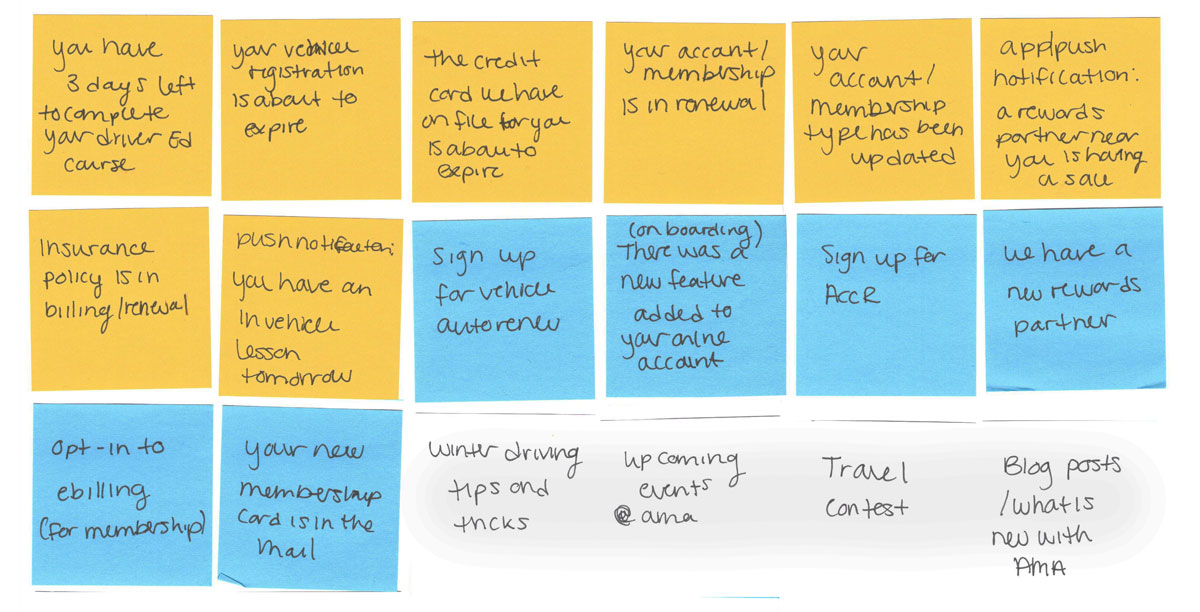 you have
3 days left
to complete
your driver Ed
course
your vehicle
registration
is about to
expire
the credit
card we have
on file for you
is about to
expire
your account/
membership
is in renewal
your
account/
membership
type has been
updated
app/push
notification:
a rewards
partner near
you is having
a sale
Insurance
policy is in
billing/renewal
push notification:
you have an
in vehicle
lesson
tomorrow
Sign up
for vehicle
autorenew
(on boarding)
There was a
new feature
added to
your online
account
Sign up for
AccR
we have a
new rewards
partner
Opt-in to
ebilling
(for membership)
your new
membership
card is in the
mail
winter driving
tips and
tricks
upcoming
events
@ ama
Travel
contest
Blog posts
/what is
new with
AMA